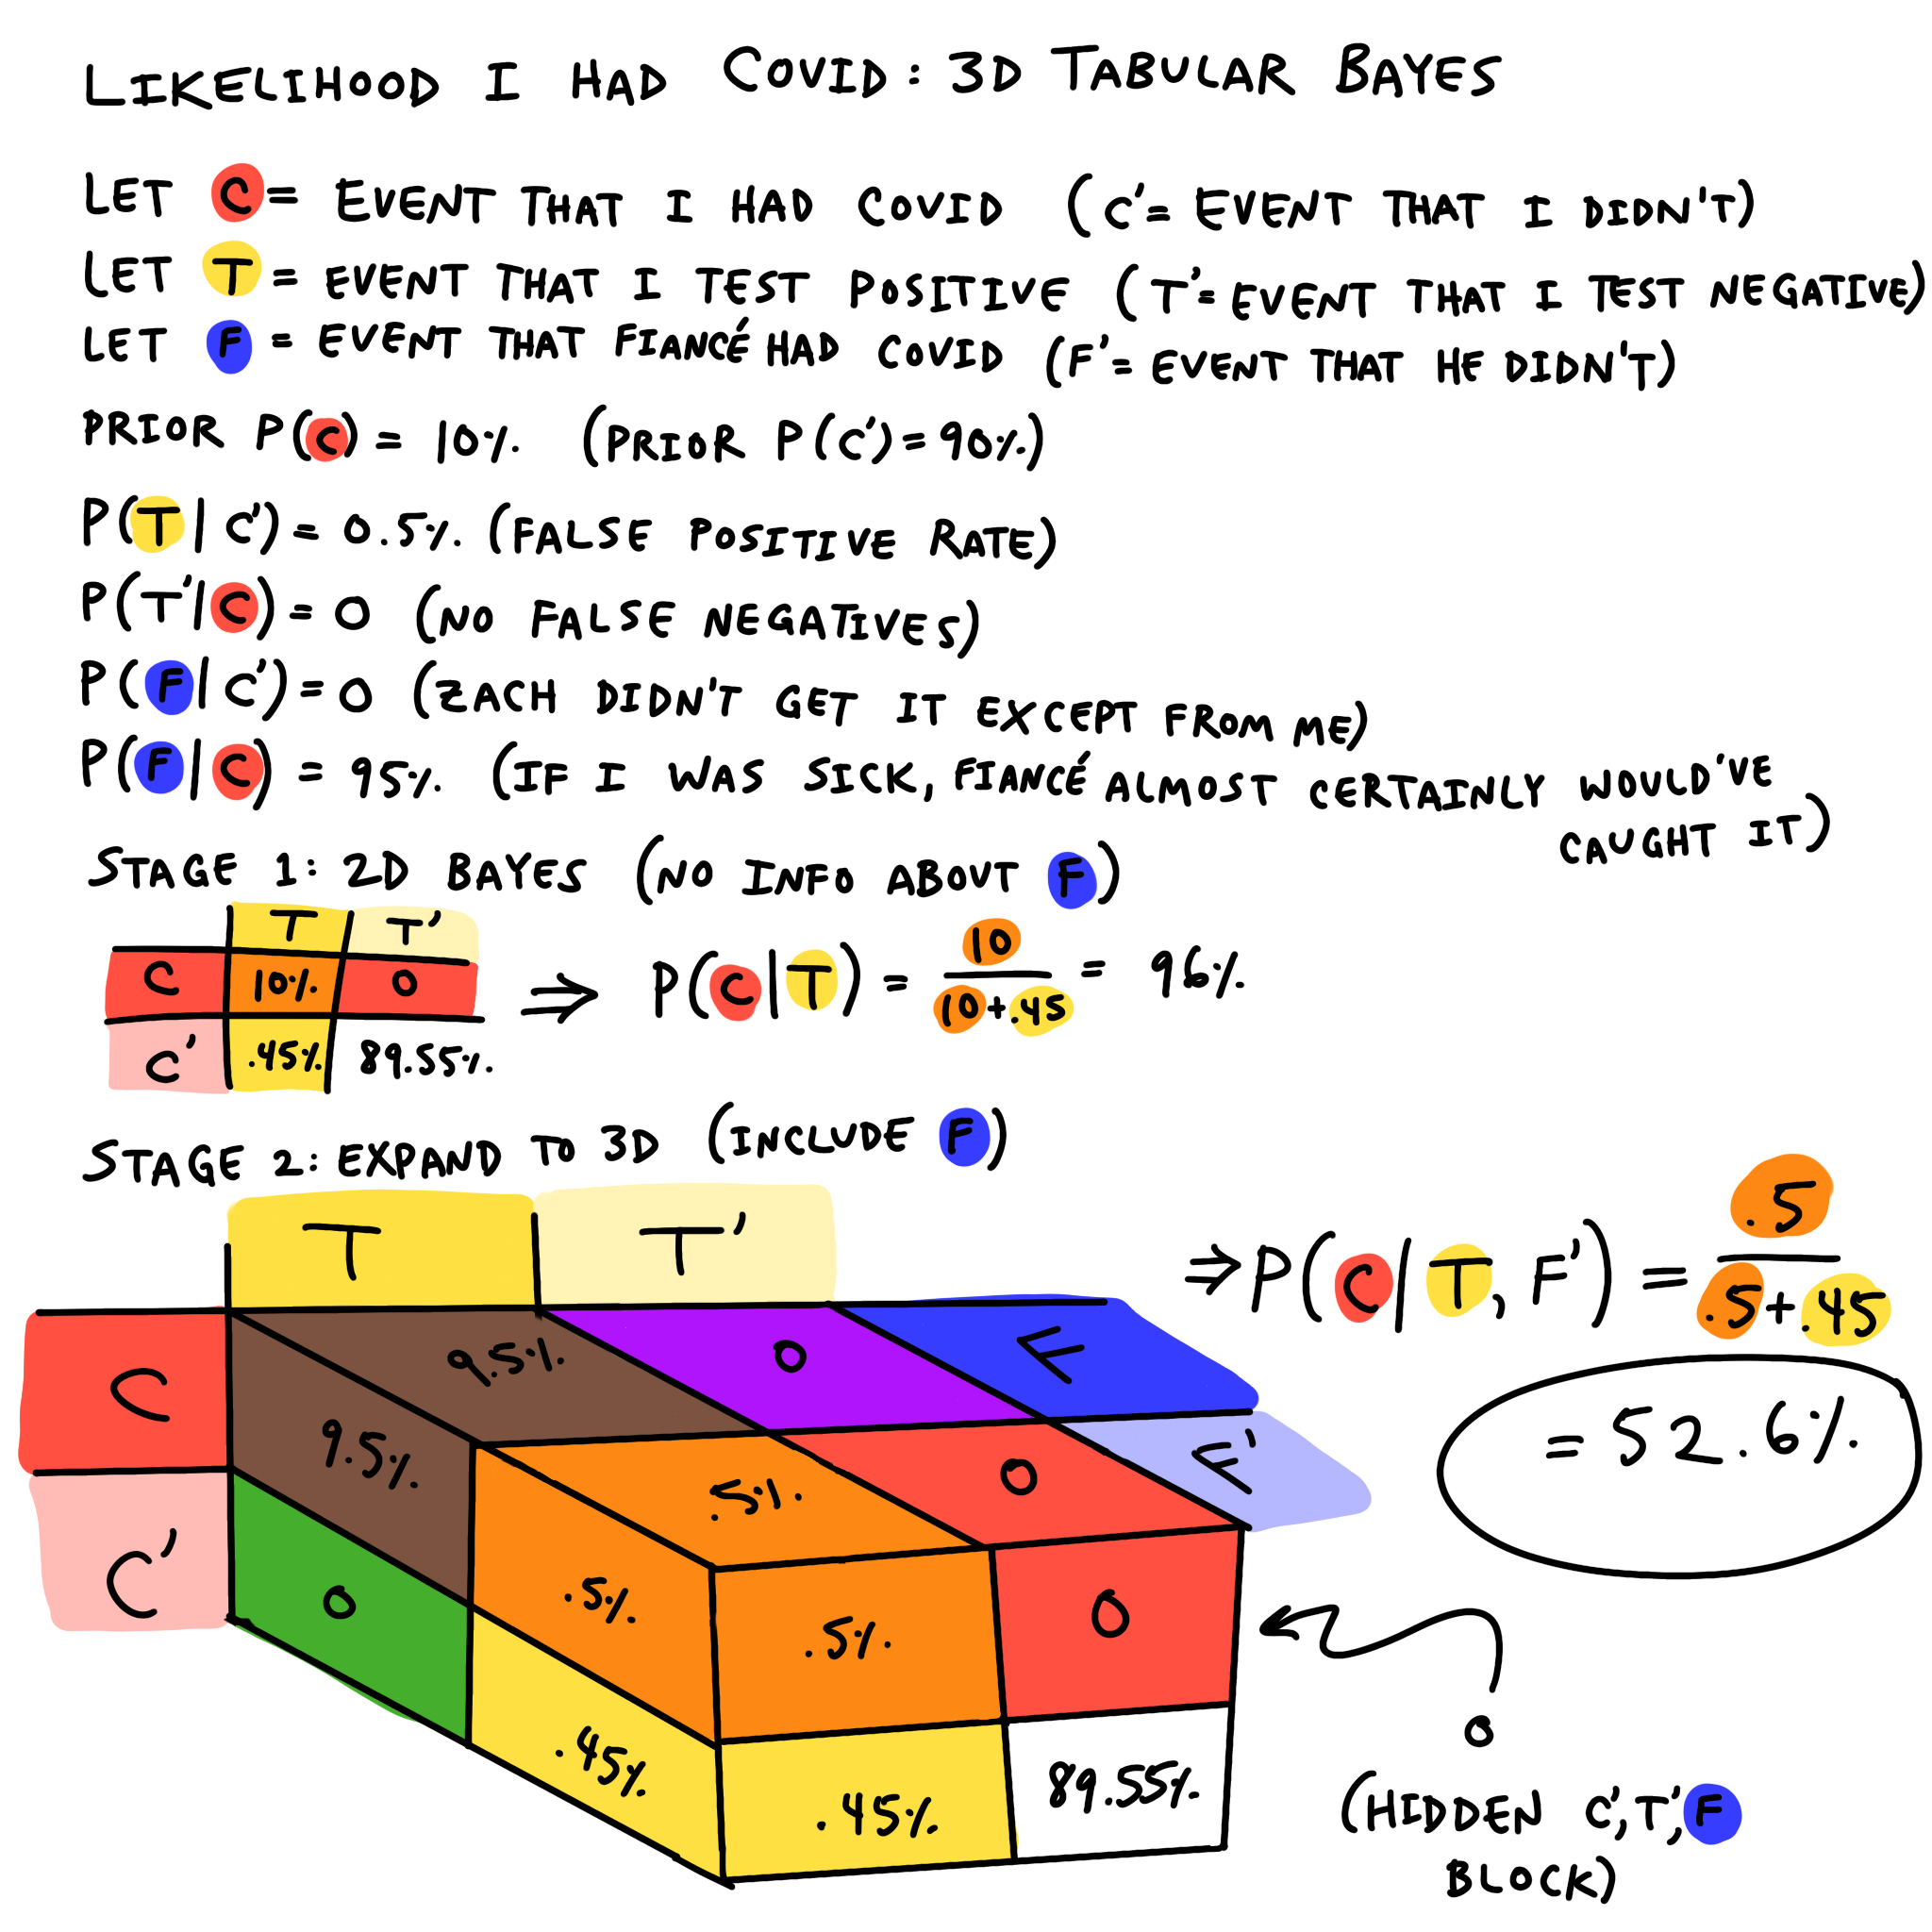 LIKELIHOOD I HAD COVID: 3D TABULAR BAYES
LET C = EVENT THAT I HAD COVID (C' = EVENT THAT I DIDN'T)
LET T = EVENT THAT I TEST POSITIVE (T' = EVENT THAT I TEST NEGATIVE)
LET F = EVENT THAT FIANCÉ HAD COVID (F' = EVENT THAT HE DIDN'T)
PRIOR P(C) = 10% (PRIOR P(C') = 90%)
P(T|C') = 0.5% (FALSE POSITIVE RATE)
P(T'|C) = 0 (NO FALSE NEGATIVES)
P(F|C') = 0 (ZACH DIDN'T GET IT EXCEPT FROM ME)
P(F|C) = 95% (IF I WAS SICK, FIANCÉ ALMOST CERTAINLY WOULD'VE
CAUGHT IT)
STAGE 1: 2D BAYES (NO INFO ABOUT F)
T T'
C 10% 0
C' .45% 89.55%
⇒ P(C|T) = 10 / 10+.45 = 96%
STAGE 2: EXPAND TO 3D (INCLUDE F)
T T'
⇒ P(C|T, F') = .5 / .5+.45
= 52.6%
C 9.5% 0 F
9.5% .5% 0 F'
C' 0 .5% .5% 0
.45% .45% 89.55%
0
(HIDDEN C', T', F
BLOCK)